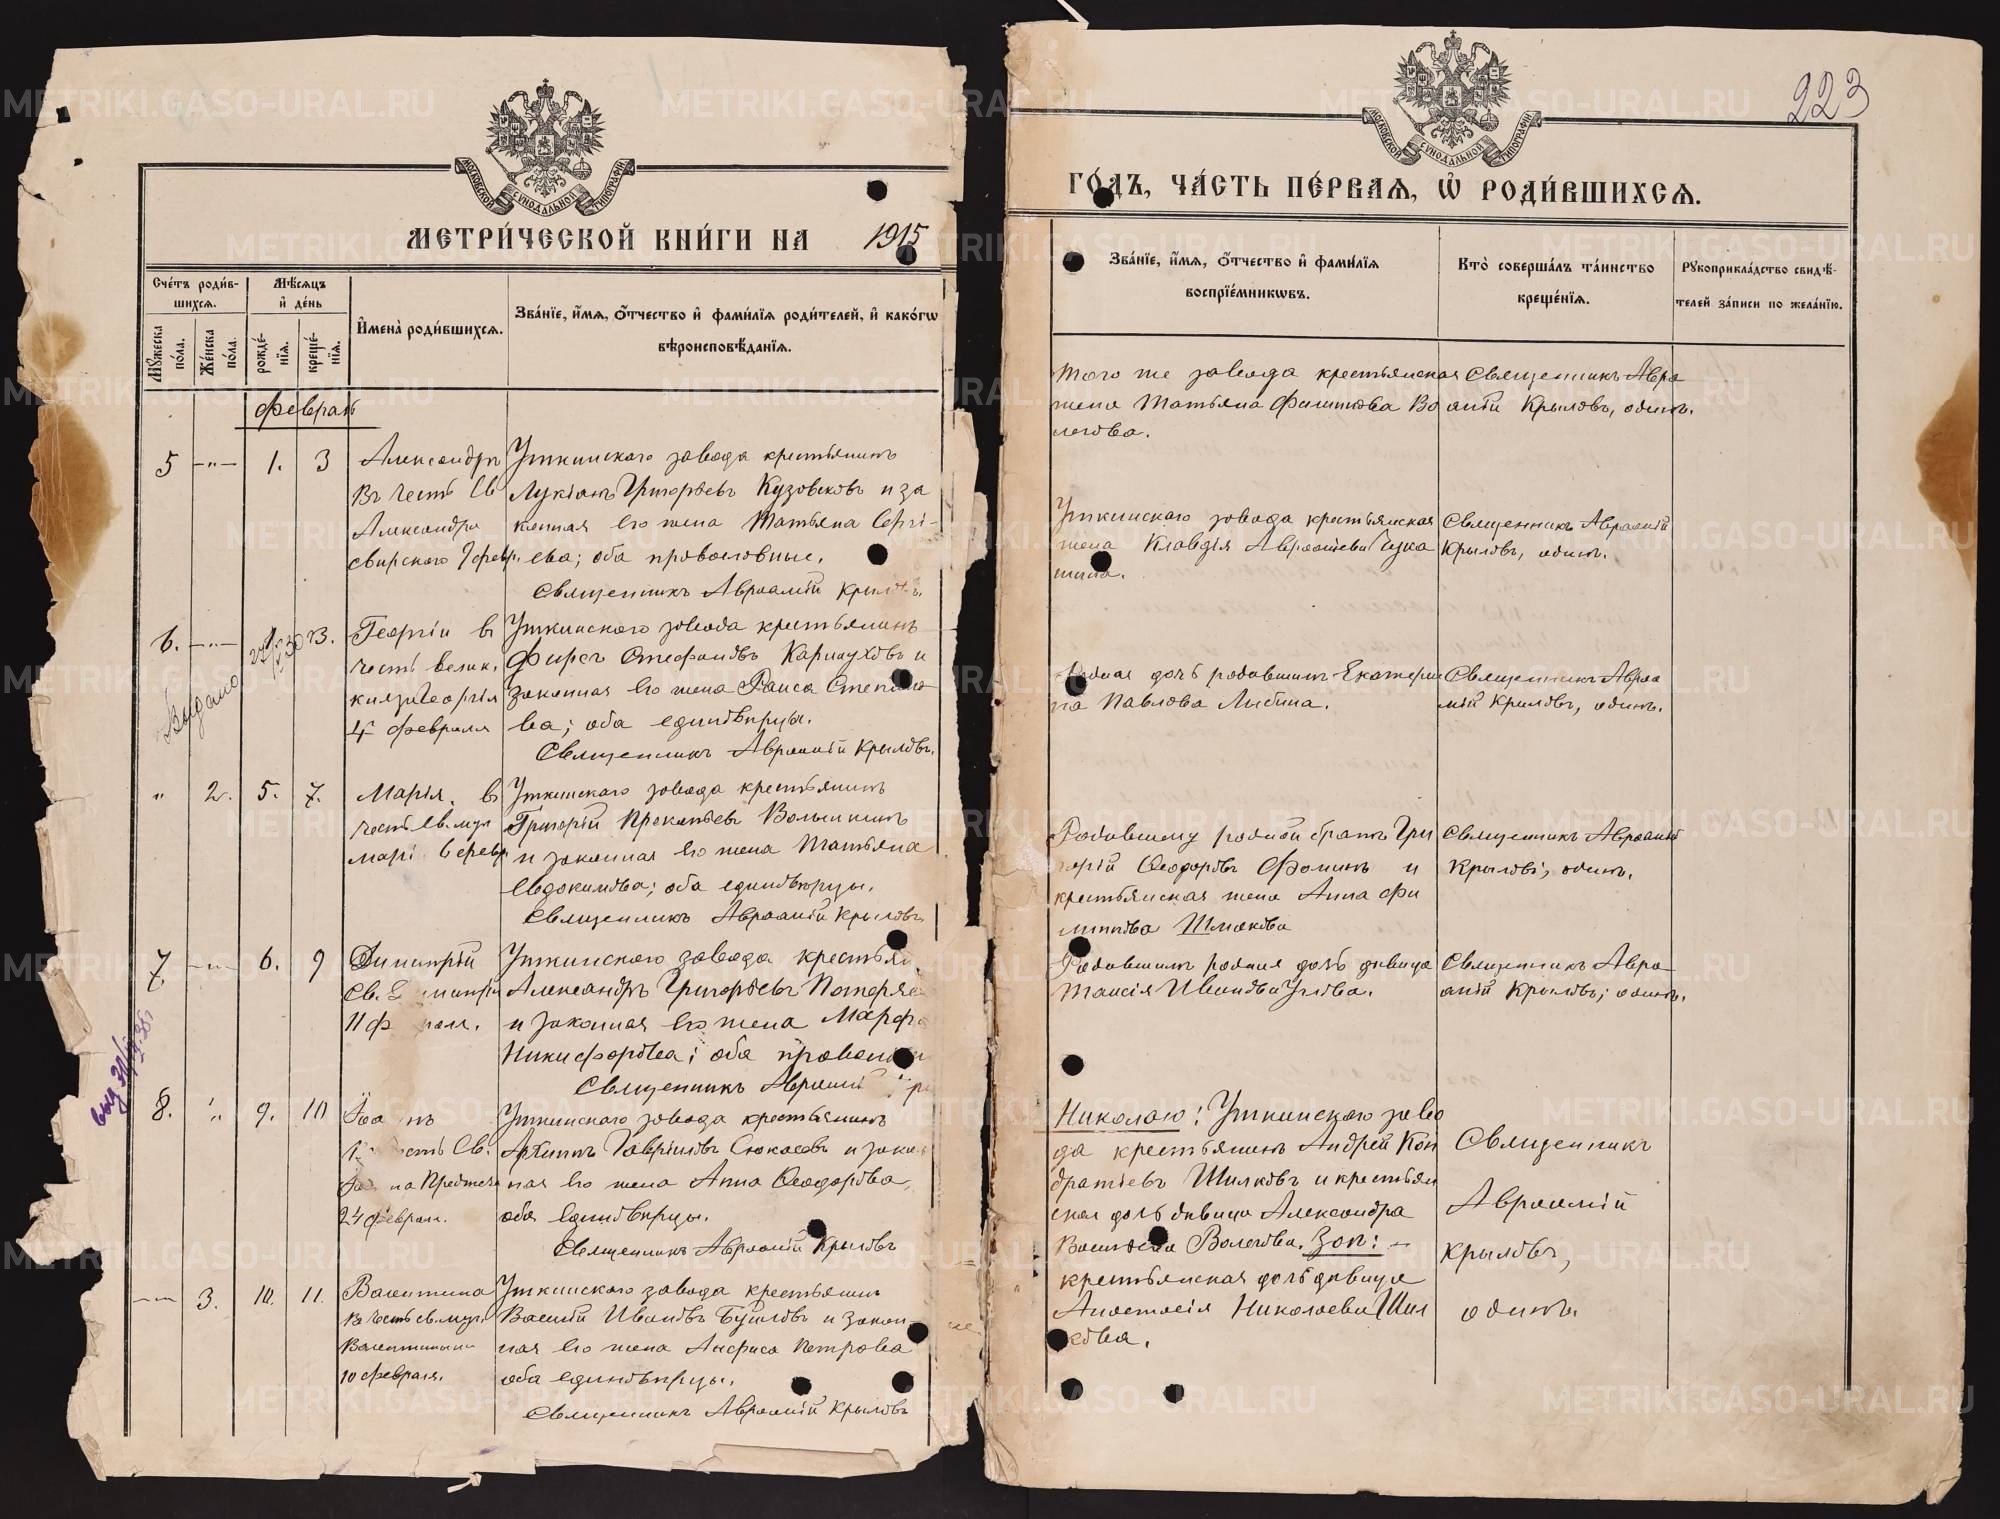 МЕТРИ́ЧЕСКОЙ КНИ́ГИ НА 1915
Сче́тъ роди́в-
шихсѧ.
Мѣ́сѧцъ
и҆ де́нь
И҆мена̀ роди́вшихсѧ.
Зва́нїе, и҆́мѧ, ѻ҆́тчество и҆ фами́лїѧ роди́телей, и҆ како́гѡ
вѣроисповѣ́данїѧ.
Мꙋ́жеска
по́ла.
Же́нска
по́ла.
рожде́-
нїѧ.
креще́-
нїѧ.
Феврал
5 —„— 1. 3
Александръ
въ честь Св
Александра
свирского 7 февр.
Уткинскаго завода крестьянинъ
Лукіанъ Григорьевъ Кузовковъ и за
конная его жена Татьяна Сергі-
ева; оба православные.
Священникъ Авраамій Крыловъ.
6. —„— 3.
Выдано
Георгій въ
честь велик.
князя Георгія
4 февраля
Уткинского завода крестьянинъ
Фирсъ Стефановъ Карпуховъ и
законная его жена Раиса Степано
ва; оба единовѣрцы.
Священникъ Авраамій Крыловъ.
„ 2. 5. 7.
Марія. въ
честь Св. муч
Маріи 6 февр
Уткинскаго завода крестьянинъ
Григорій Прокопьевъ Волынкинъ
и законная его жена Татьяна
Евдокимова; оба единовѣрцы.
Священникъ Авраамій Крыловъ
7 —„— 6. 9
Димитрій
Св.
11 ф
Уткинского завода крестьян
Александръ Григорьевъ Потеряе
и законная его жена Марфа
Никифорова; оба православн
Священникъ Авраамій
8. „ 9. 10
24 феврал.
Уткинскаго завода крестьянинъ
Архипъ Гавріиловъ Сюкасевъ и закон
ная его жена Анна Ѳеодорова,
оба единовѣрцы.
Священникъ Авраамій Крыловъ
—„— 3. 10. 11.
Валентина
въ честь св. муч.
Валентины
10 февраля.
Уткинскаго завода крестьянинъ
Василій Ивановъ Буйловъ и закон-
ная его жена Анфиса Петрова
оба единовѣрцы.
Священникъ Авраамій Крыловъ
223
ГО́ДЪ, ЧА́СТЬ ПЕ́РВАѦ, Ѡ҆ РОДИ́ВШИХСѦ.
Зва́нїе, и҆́мѧ, ѻ҆́тчество и҆ фами́лїѧ
воспрїе́мникѡвъ.
Кто̀ соверша́лъ та́инство
креще́нїѧ.
Рꙋкоприкла́дство свидѣ́-
телей за́писи по жела́нїю.
Того же завода крестьянская
жена Татьяна Филиппова Во
логова.
Священникъ Авра
амій Крыловъ, одинъ.
Уткинскаго завода крестьянская
жена Клавдія Авраамієва Чука
шина.
Священникъ Авраамій
Крыловъ, одинъ.
Родная дочь родившимъ Екатери
на Павлова Лыбина.
Священникъ Авраа
мій Крыловъ, одинъ.
Родившему родной братъ Гри
горій Ѳеодоровъ Фоминъ и
крестьянская жена Анна Фи
липпова Шмакова
Священникъ Авраамій
Крыловъ, одинъ.
Родившимъ родная дочь дѣвица
Таисія Иванова Углова.
Священникъ Авра-
амій Крыловъ; одинъ.
Николаю: Уткинскаго заво
да крестьянинъ Андрей Кон
дратіевъ Шилковъ и крестьян
ская дочь дѣвица Александра
Васильева Вологова. Зоп: —
крестьянская дочь дѣвица
Анастасія Николаева Шил
кова.
Священникъ
Авраамій
Крыловъ,
одинъ.
МОСКОВСКОЙ СѴНОДАЛЬНОЙ ТИПОГРАФІИ
METRIKI.GASO-URAL.RU